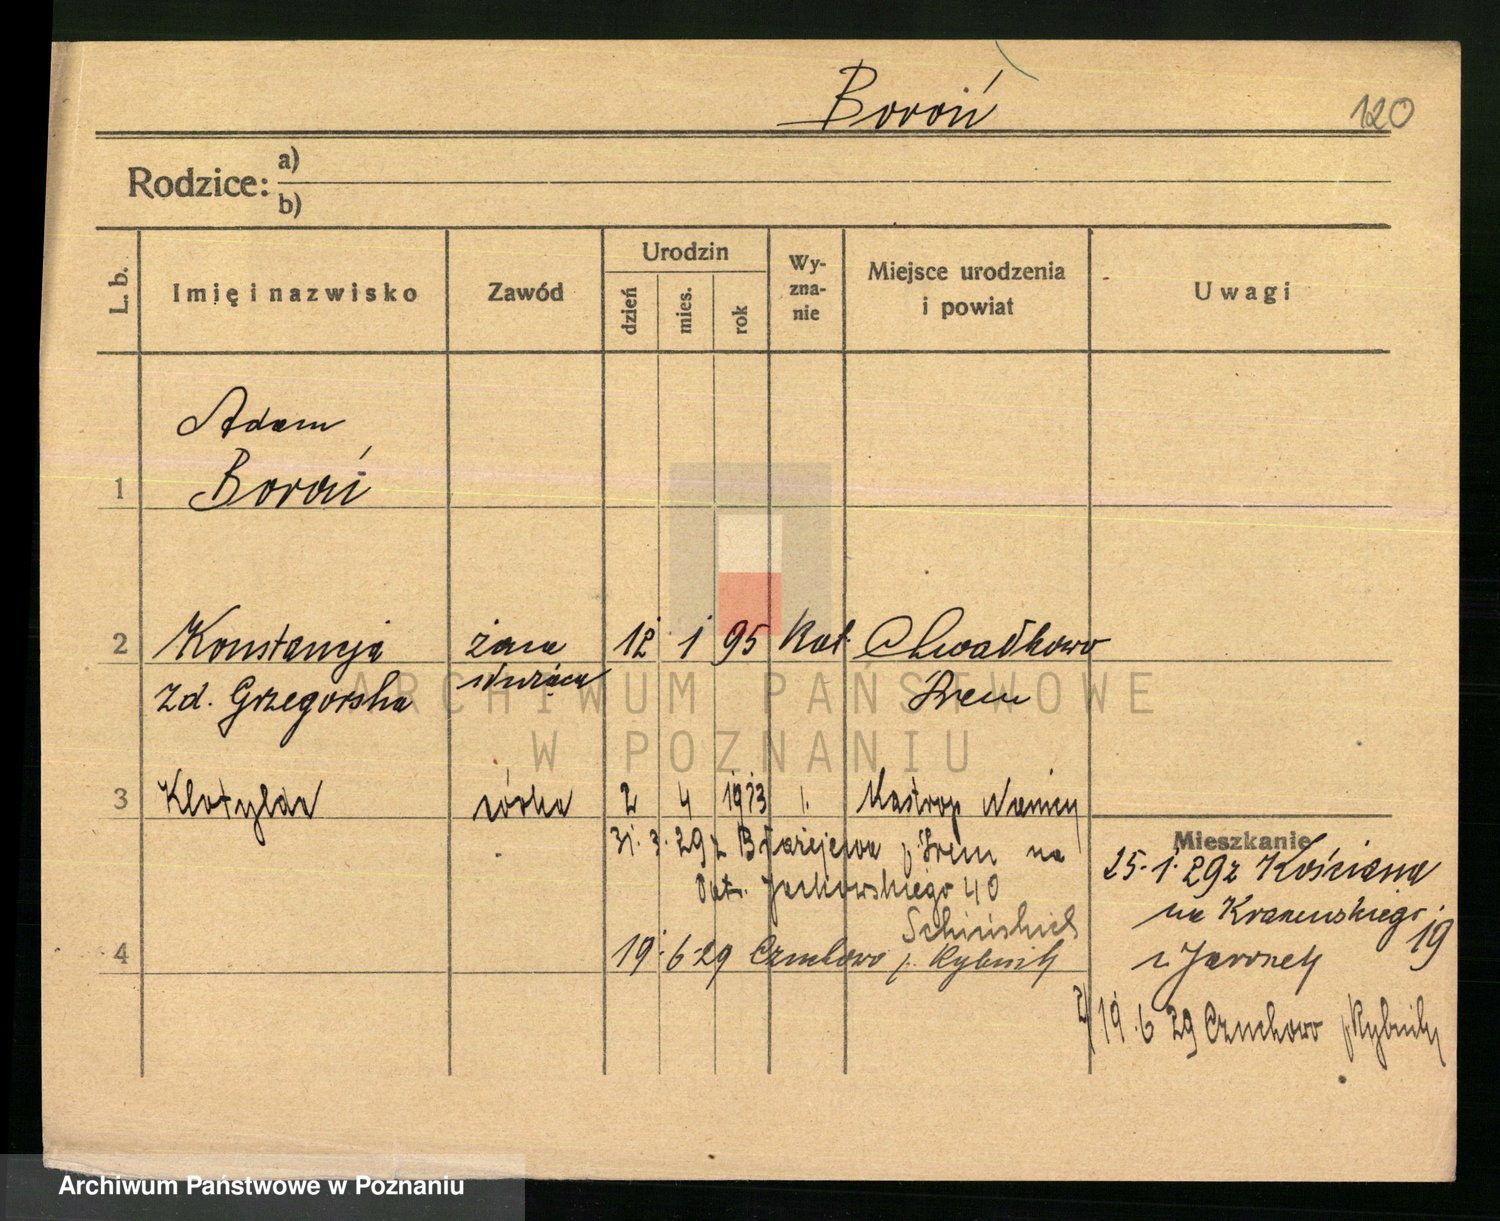 Boroń
120
Rodzice: a)
b)
L. b.
Imię i nazwisko
Zawód
Urodzin
dzień
mies.
rok
Wy-
zna-
nie
Miejsce urodzenia
i powiat
Uwagi
Adam
1 Boroń
2 Konstancja żona 12 1 95 Kat. Chwałkowo
zd. Grzegorska służąca Śrem
3 Klotylda córka 2 4 1913 Kastrop Niemcy
31. 3. 29 z Błażejewa p. Śrem na
Jackowskiego 40
4 19. 6 29 Czuchowo p. Rybnik
Mieszkanie
25. 1. 29 z Kościana
na Kraszewskiego 19
19. 6 29 Czuchowo p. Rybnik
ARCHIWUM PAŃSTWOWE
W POZNANIU
Archiwum Państwowe w Poznaniu